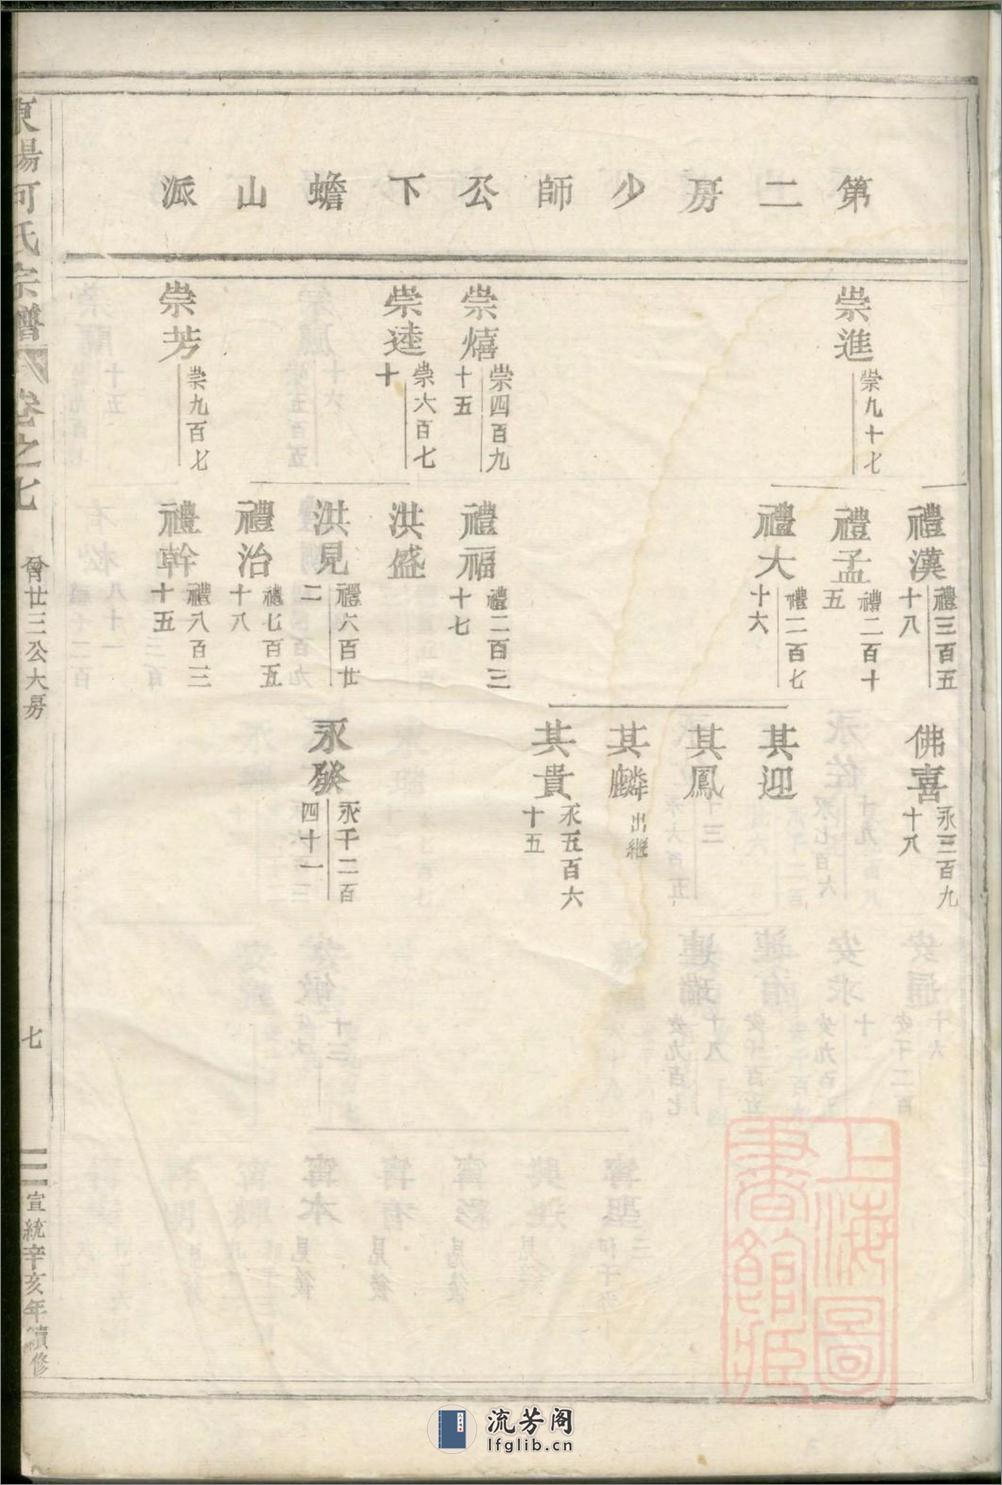 第二房少師公下蟾山派
崇進 崇九十七
崇熺 崇四百九十五
崇逵 崇六百七十
崇芳 崇九百七
禮漢 禮三百五十八
禮孟 禮二百十五
禮大 禮二百七十六
禮福 禮二百三十七
洪盛
洪見 禮六百廿二
禮治 禮七百五十八
禮幹 禮八百三十五
佛喜 永三百九十八
其迎
其鳳
其麟 出繼
其貴 永五百六十五
永發 永千二百四十一
東陽何氏宗譜
卷之七
曾廿三公大房
七
宣統辛亥年續修
上海圖書館藏
流芳阁
lfglib.cn